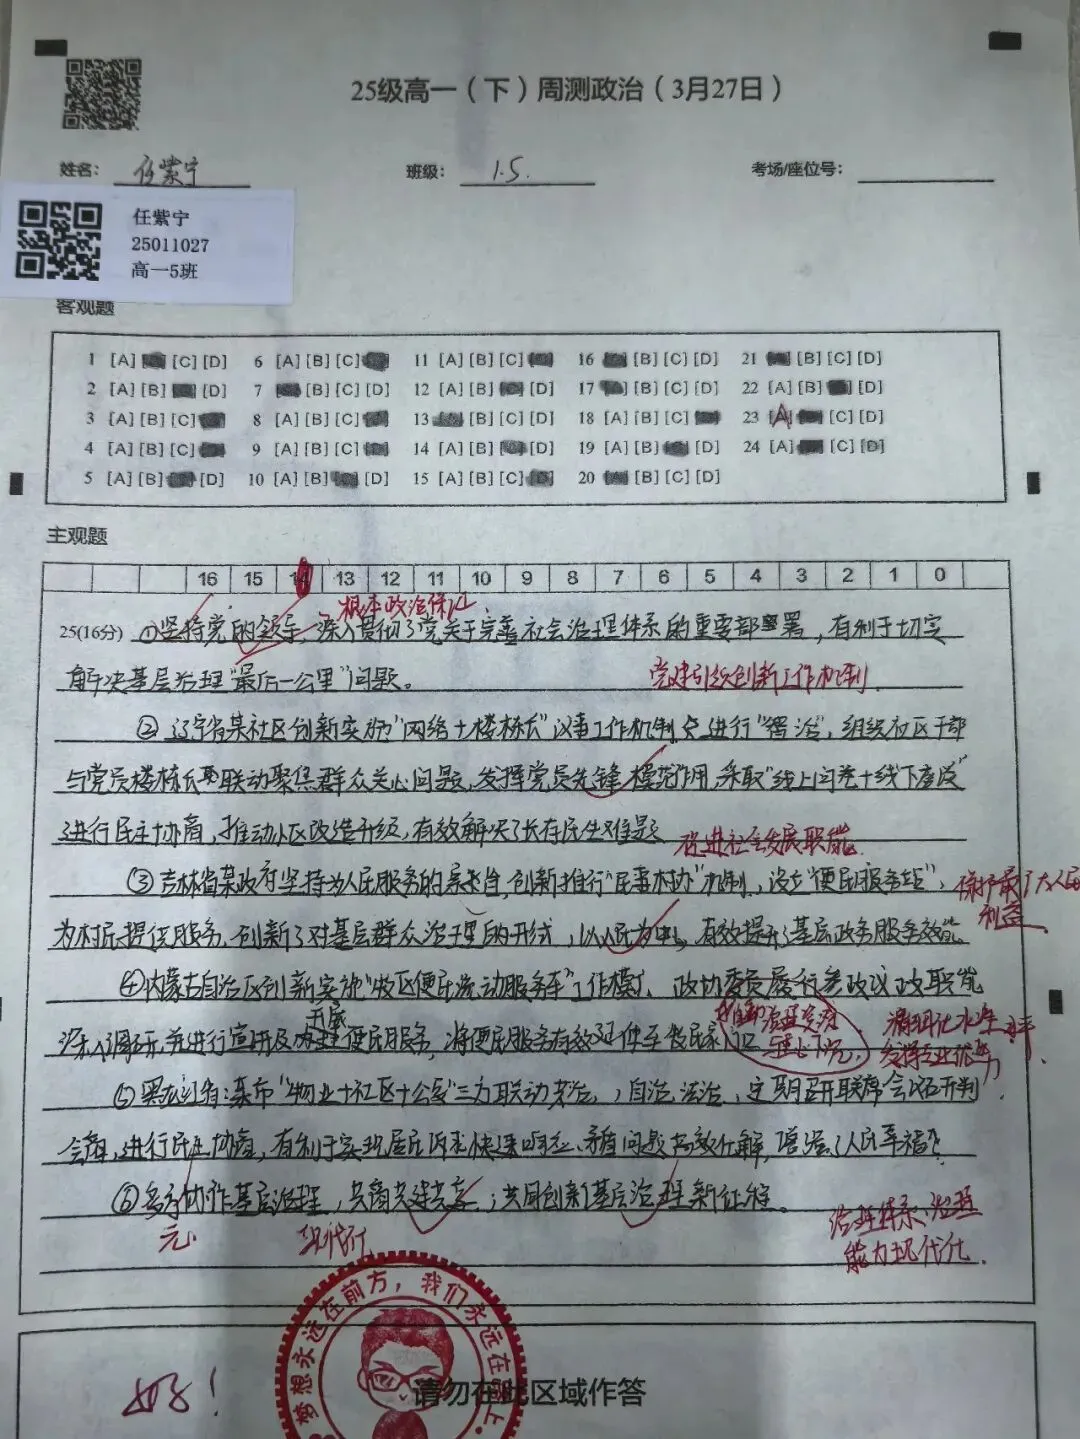 25级高一（下）周测政治（3月27日）
姓名： 任紫宁
班级： 1.5.
考场/座位号：
任紫宁
25011027
高一5班
客观题
1 [A] [C] [D] 6 [A] [B] [C] 11 [A] [B] [C] 16 [B] [C] [D] 21 [B] [C] [D]
2 [A] [B] [D] 7 [B] [C] [D] 12 [A] [B] [D] 17 [B] [C] [D] 22 [A] [B] [D]
3 [A] [B] [C] 8 [A] [B] [C] 13 [B] [C] [D] 18 [A] [B] [C] 23 [A] [C] [D]
4 [A] [B] [C] 9 [A] [B] [C] 14 [A] [B] [D] 19 [A] [B] [D] 24 [A] [C] [D]
5 [A] [B] [D] 10 [A] [B] [D] 15 [A] [B] [C] 20 [B] [C] [D]
主观题
16 15 14 13 12 11 10 9 8 7 6 5 4 3 2 1 0
根本政治保证
25(16分) ①坚持党的领导，深入贯彻了党关于完善社会治理体系的重要部署，有利于切实
解决基层治理"最后一公里"问题。
党建引领创新工作机制
②辽宁省某社区创新实施"网络+楼栋长"议事工作机制 进行"智治"，组织社区干部
与党员楼栋长 联动聚焦群众关心问题，发挥党员先锋模范作用，采取"线上问卷+线下座谈"
进行民主协商，推动小区改造升级，有效解决了长存民生难题
促进社会发展职能
③吉林省某政府坚持为人民服务的 ，创新推行"民事村办"机制，设立"便民服务站"，
保护最广大人民
利益
为村民提供服务，创新了对基层群众治理的形式，以人民为中心，有效提升了基层政务服务效能。
④内蒙古自治区创新实施"牧区便民流动服务车"工作模式、政协委员履行参政议政职能
开展
深入调研，并进行宣讲及 便民服务，将便民服务有效延伸至牧民家门口
推动治理资源
重心下沉，
发挥专业优势
⑤黑龙江省某市"物业+社区+公安"三方联动共治，自治、法治，定期召开联席会议研判
会商，进行民主协商，有利于实现居民诉求快速响应、矛盾问题高效化解，增强了人民幸福感
⑥多方协作基层治理，共商共建共享；共同创新基层治理新征程。
元
现代化
治理体系、治理
能力现代化。
梦想永远在前方，我们永远在路上。
请勿在此区域作答
好！